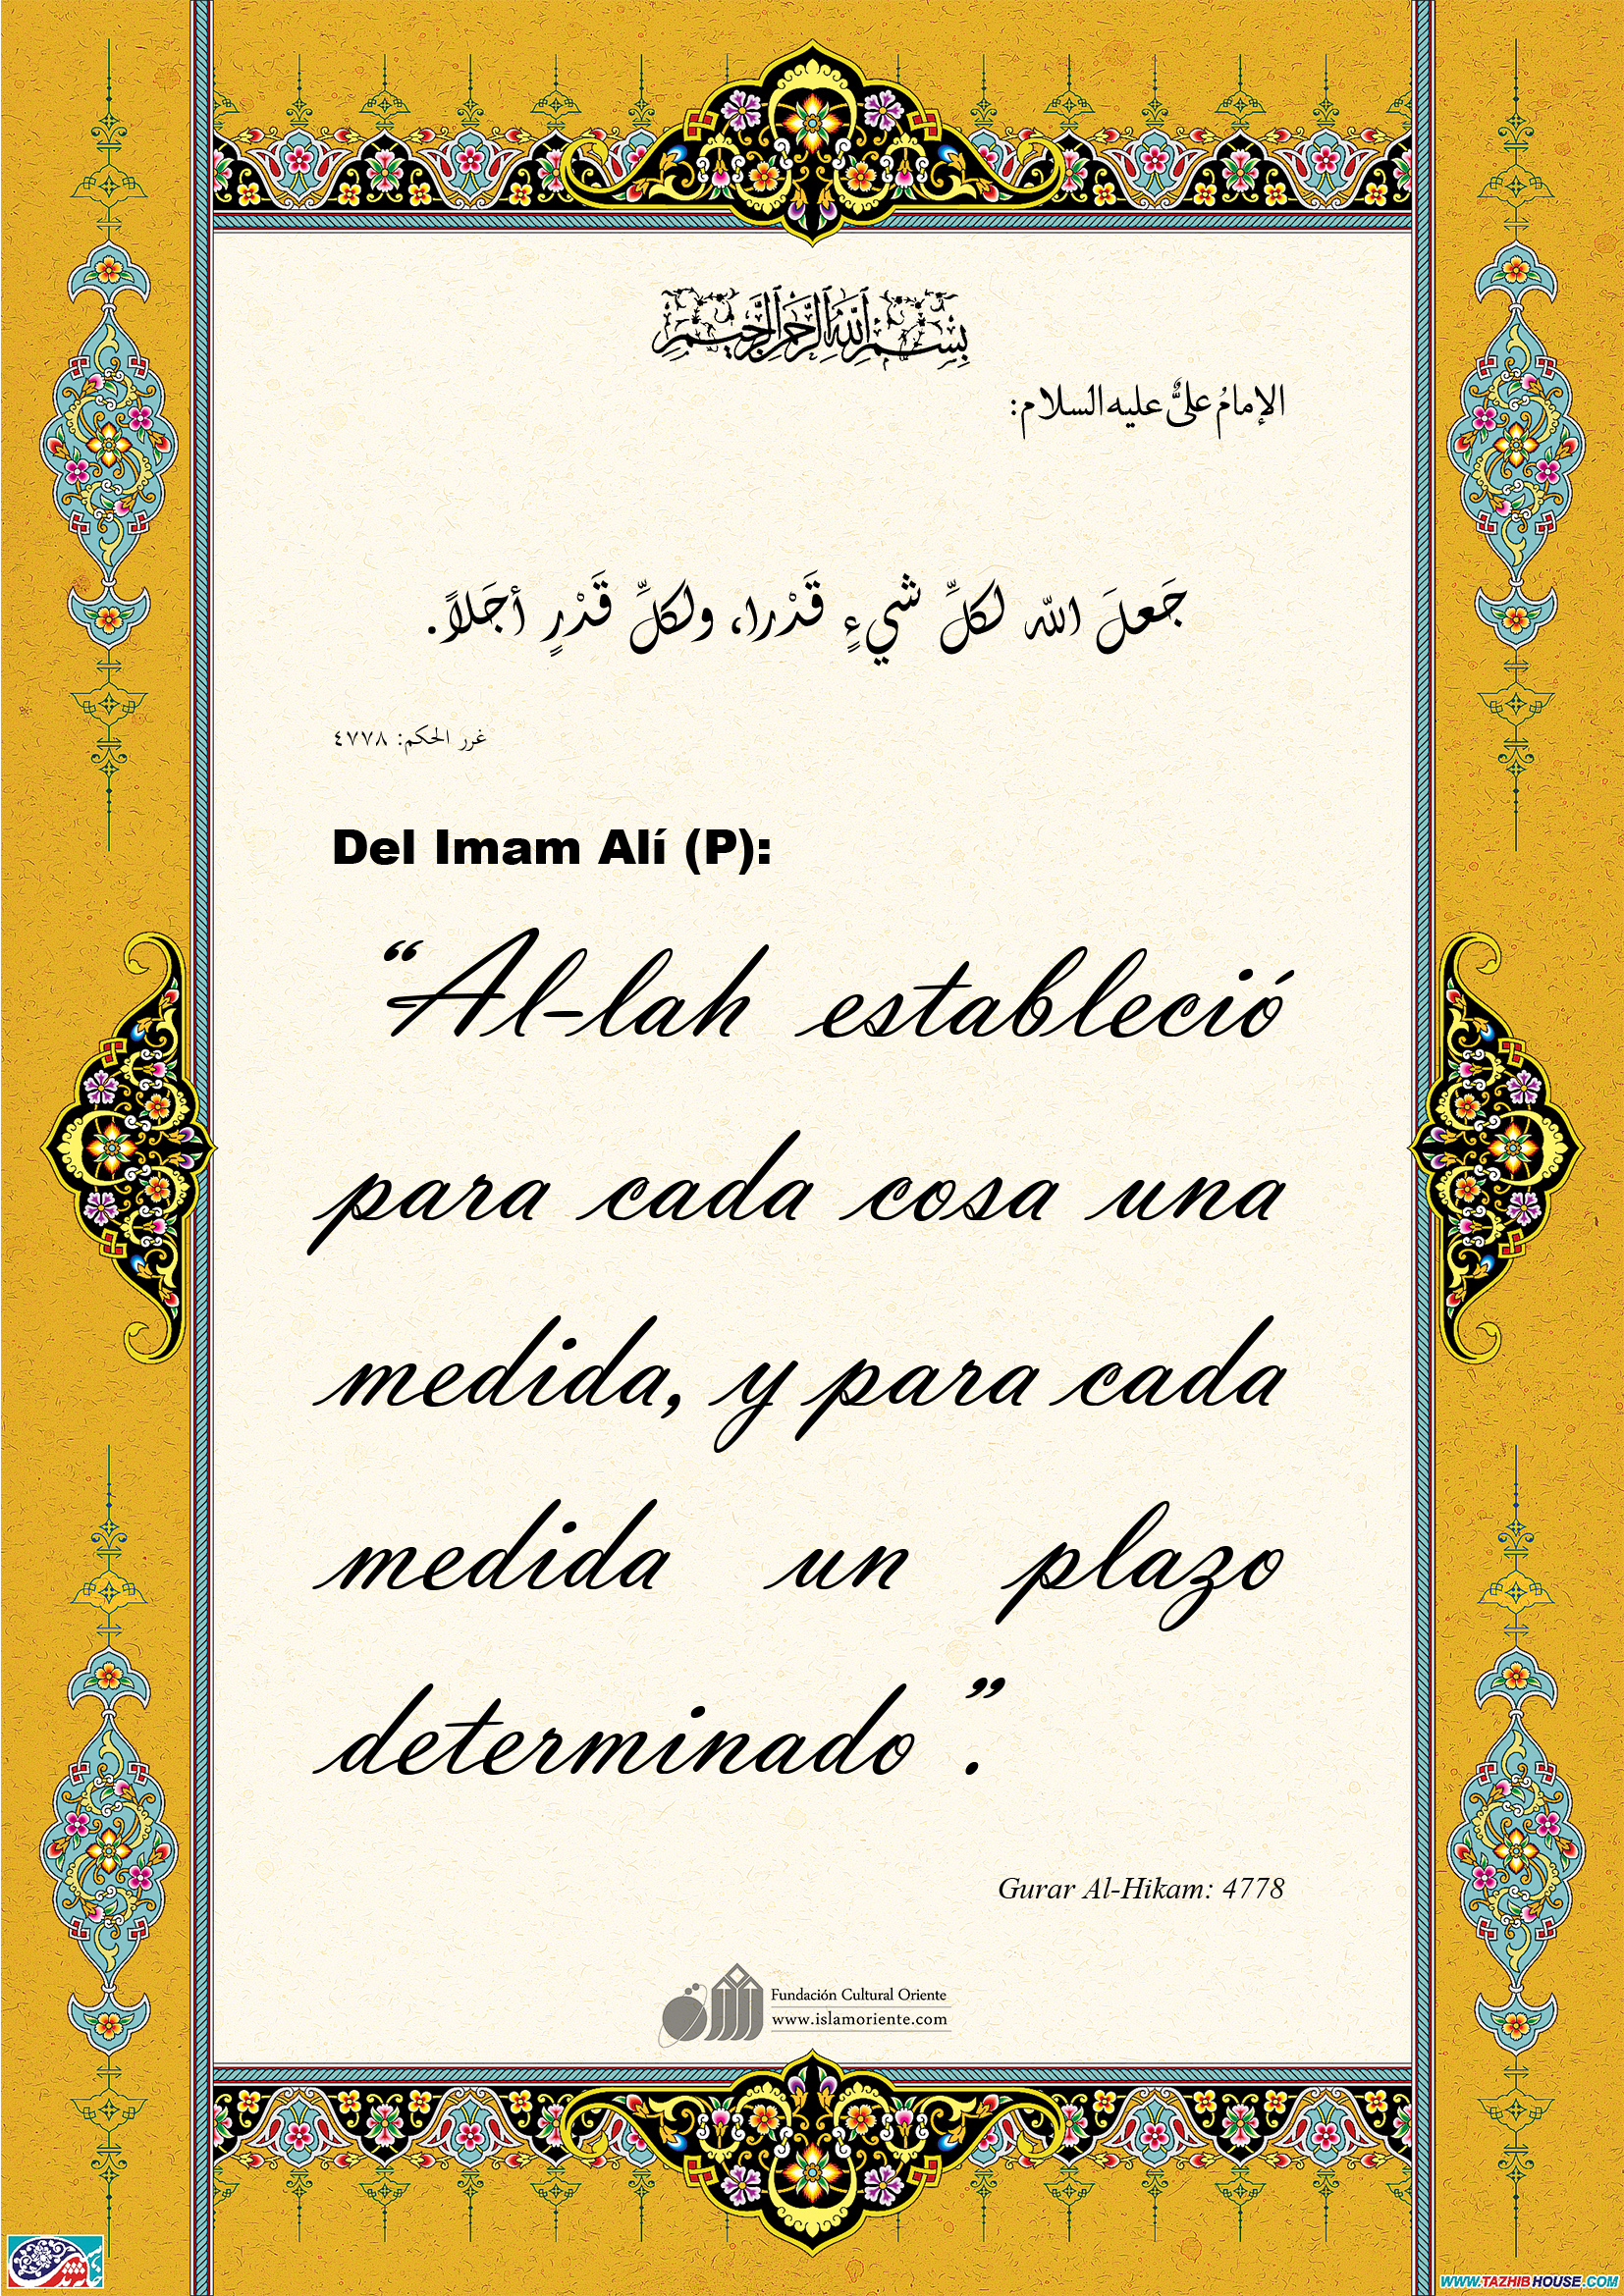 بِسْمِ اللَّهِ الرَّحْمَنِ الرَّحِيمِ
الإمامُ عليٌّ عليه السلام:
جَعلَ اللّه لكلِّ شيءٍ قَدْرا، ولكلِّ قَدْرٍ أجَلاً.
غرر الحكم: ٤٧٧٨
Del Imam Alí (P):
“Al-lah estableció
para cada cosa una
medida, y para cada
medida un plazo
determinado”.
Gurar Al-Hikam: 4778
Fundación Cultural Oriente
www.islamoriente.com
WWW.TAZHIBHOUSE.COM